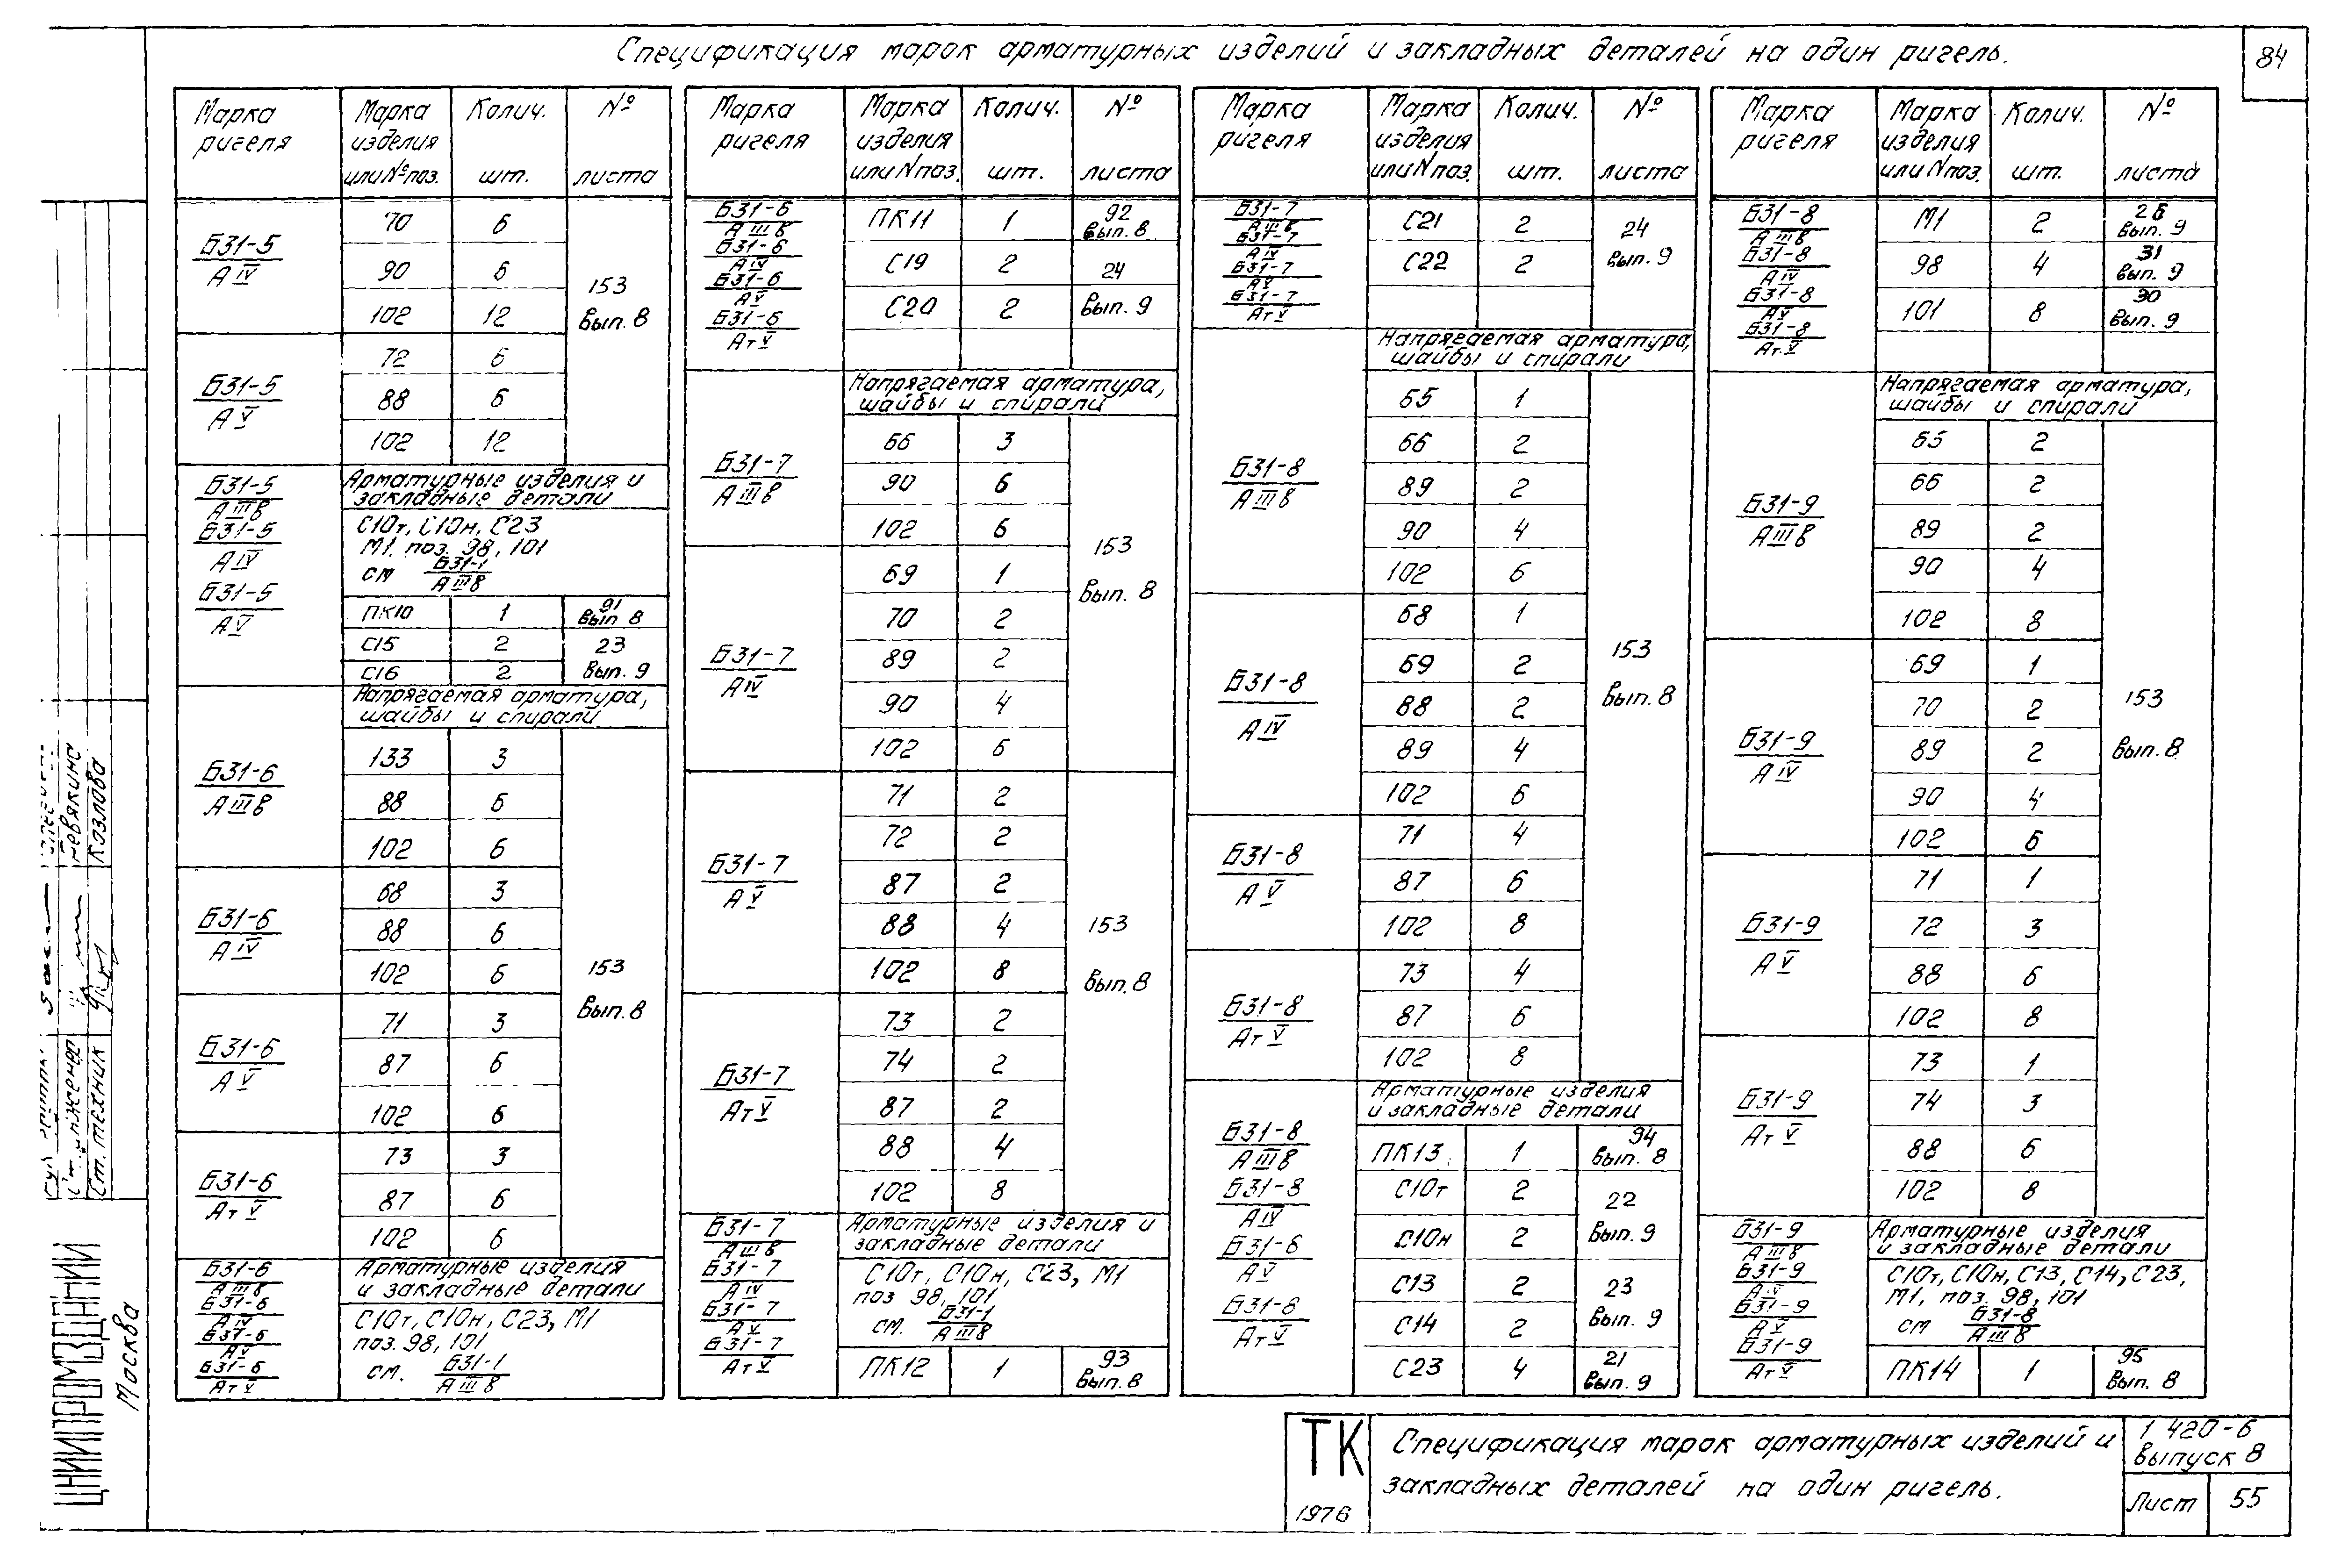 Спецификация марок арматурных изделий и закладных деталей на один ригель.
84
Марка ригеля | Марка изделия или № поз. | Колич. шт. | № листа
БЗ1-5 / АIV
70 6
90 6
102 12
153 вып. 8
БЗ1-5 / АV
72 6
88 6
102 12
БЗ1-5 / АIIIв
БЗ1-5 / АIV
БЗ1-5 / АV
Арматурные изделия и
закладные детали
С10т, С10н, С23
М1. поз. 98, 101
см БЗ1-1 / АIIIв
ПК10 1 91 вып 8
С15 2 23
С16 2 вып. 9
Напрягаемая арматура,
шайбы и спирали
БЗ1-6 / АIIIв
133 3
88 6
102 6
БЗ1-6 / АIV
68 3
88 6
102 6
153
вып. 8
БЗ1-6 / АV
71 3
87 6
102 6
БЗ1-6 / АтV
73 3
87 6
102 6
БЗ1-6 / АIIIв
БЗ1-6 / АIV
БЗ1-6 / АV
БЗ1-6 / АтV
Арматурные изделия
и закладные детали
С10т, С10н, С23, М1
поз. 98, 101
см. БЗ1-1 / АIIIв
Марка ригеля | Марка изделия или N поз. | Колич. шт. | № листа
БЗ1-6 / АIIIв
БЗ1-6 / АIV
БЗ1-6 / АV
БЗ1-6 / АтV
ПК11 1 92 вып. 8
С19 2 24
С20 2 вып. 9
Напрягаемая арматура,
шайбы и спирали
БЗ1-7 / АIIIв
66 3
90 6
102 6
153
вып. 8
БЗ1-7 / АIV
69 1
70 2
89 2
90 4
102 6
БЗ1-7 / АV
71 2
72 2
87 2
88 4
102 8
153
вып. 8
БЗ1-7 / АтV
73 2
74 2
87 2
88 4
102 8
БЗ1-7 / АIIIв
БЗ1-7 / АIV
БЗ1-7 / АV
БЗ1-7 / АтV
Арматурные изделия и
закладные детали
С10т, С10н, С23, М1
поз 98, 101
см. БЗ1-1 / АIIIв
ПК12 1 93 вып. 8
Марка ригеля | Марка изделия или N поз. | Колич. шт. | № листа
БЗ1-7 / АIIIв
БЗ1-7 / АIV
БЗ1-7 / АV
БЗ1-7 / АтV
С21 2 24
С22 2 вып. 9
Напрягаемая арматура,
шайбы и спирали
БЗ1-8 / АIIIв
65 1
66 2
89 2
90 4
102 6
БЗ1-8 / АIV
68 1
69 2
88 2
89 4
102 6
153
вып. 8
БЗ1-8 / АV
71 4
87 6
102 8
БЗ1-8 / АтV
73 4
87 6
102 8
Арматурные изделия
и закладные детали
БЗ1-8 / АIIIв
БЗ1-8 / АIV
БЗ1-8 / АV
БЗ1-8 / АтV
ПК13 1 94 вып. 8
С10т 2 22
С10н 2 вып. 9
С13 2 23
С14 2 вып. 9
С23 4 21 вып. 9
Марка ригеля | Марка изделия или N поз. | Колич. шт. | № листа
БЗ1-8 / АIIIв
БЗ1-8 / АIV
БЗ1-8 / АV
БЗ1-8 / Ат.V
М1 2 26 вып. 9
98 4 31 вып. 9
101 8 30 вып. 9
Напрягаемая арматура,
шайбы и спирали
БЗ1-9 / АIIIв
65 2
66 2
89 2
90 4
102 8
БЗ1-9 / АIV
69 1
70 2
89 2
90 4
102 6
153
вып. 8
БЗ1-9 / АV
71 1
72 3
88 6
102 8
БЗ1-9 / АтV
73 1
74 3
88 6
102 8
БЗ1-9 / АIIIв
БЗ1-9 / АIV
БЗ1-9 / АV
БЗ1-9 / АтV
Арматурные изделия
и закладные детали
С10т, С10н, С13, С14, С23,
М1, поз. 98, 101
см БЗ1-8 / АIIIв
ПК14 1 95 вып. 8
ТК
1976
Спецификация марок арматурных изделий и
закладных деталей на один ригель.
1 420-6
выпуск 8
Лист 55
Невякина
Козлова
Ст. техник
ЦНИИПРОМЗДАНИЙ
Москва